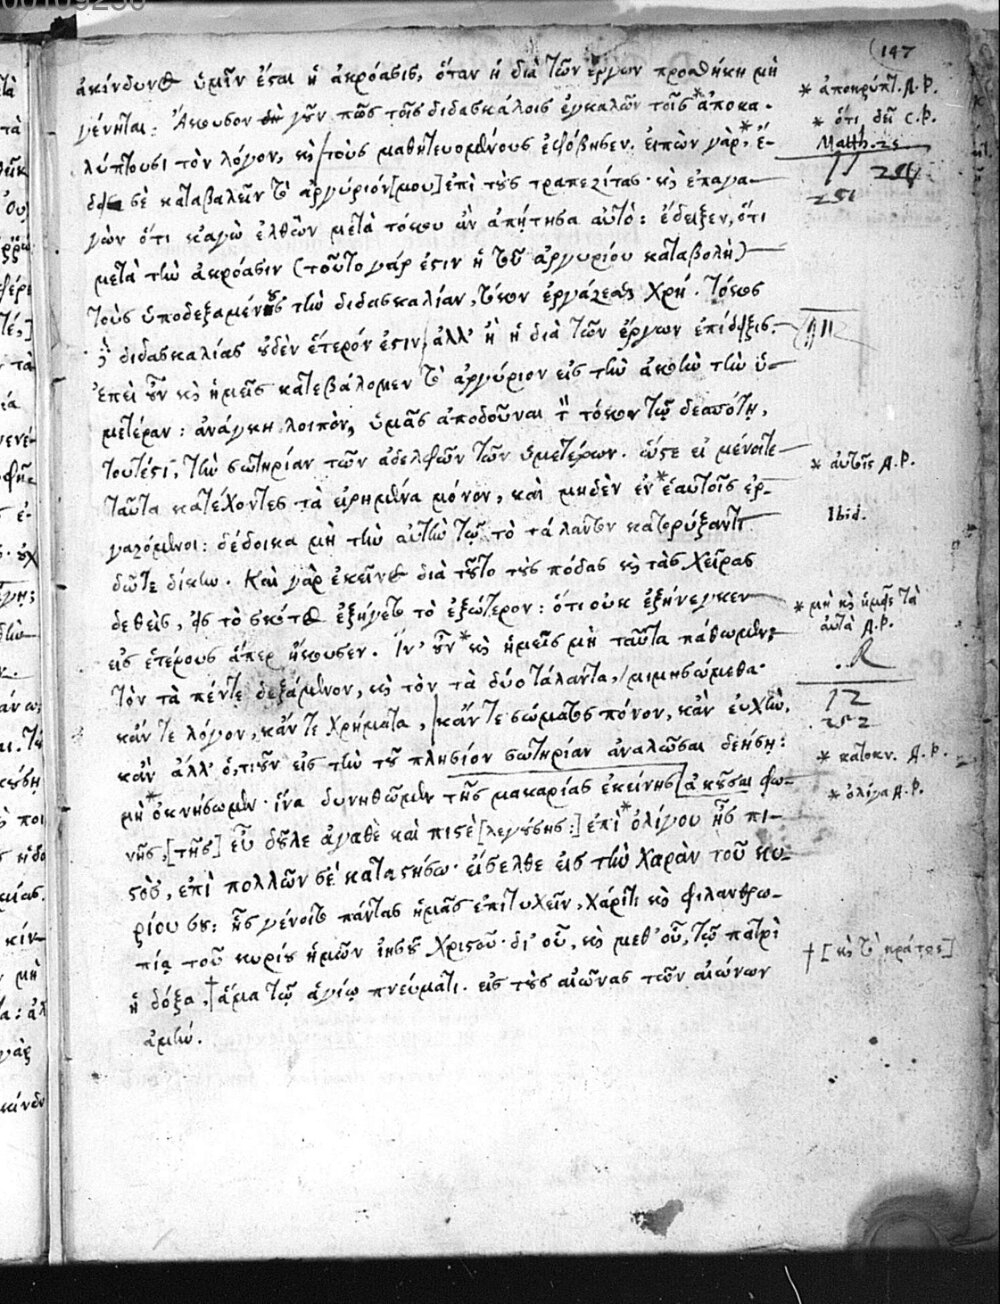 (147
ἀκίνδυνος ὑμῖν ἔσται ἡ ἀκρόασις, ὅταν ἡ διὰ τῶν ἔργων προσθήκη μὴ
* ἀποκρύπτ. Δ.Ρ.
γένηται: Ἄκουσον γοῦν πῶς τοῖς διδασκάλοις ἐγκαλῶν τοῖς * ἀποκα-
* ὅτι δεῖ C.P.
λύπτουσι τὸν λόγον, καὶ τοὺς μαθητευομένους ἐφόβησεν. εἰπὼν γὰρ, * ἔ-
Matth. 25
δει σε καταβαλεῖν τὸ ἀργύριόν [μου] ἐπὶ τοὺς τραπεζίτας· καὶ ἐπαγα-
11 251
251
γὼν ὅτι κἀγὼ ἐλθὼν μετὰ τόκου ἂν ἀπῄτησα αὐτό: ἔδειξεν, ὅτι
μετὰ τὴν ἀκρόασιν (τοῦτο γάρ ἐστιν ἡ τοῦ ἀργυρίου καταβολὴ)
τοὺς ὑποδεξαμένους τὴν διδασκαλίαν, τόκον ἐργάζεσθαι χρή. Τόκος
δὲ διδασκαλίας οὐδὲν ἕτερόν ἐστιν, ἀλλ' ἢ ἡ διὰ τῶν ἔργων ἐπίδειξις.
ἐπεὶ οὖν καὶ ἡμεῖς κατεβάλομεν τὸ ἀργύριον εἰς τὴν ἀκοὴν τὴν ὑ-
μετέραν: ἀνάγκη λοιπὸν, ὑμᾶς ἀποδοῦναι τὸν τόκον τῷ δεσπότῃ,
τουτέστι, τὴν σωτηρίαν τῶν ἀδελφῶν τῶν ὑμετέρων. ὥστε εἰ μένοιτε
* αὐτοῖς Δ.Ρ.
ταῦτα κατέχοντες τὰ εἰρημένα μόνον, καὶ μηδὲν ἐν * ἑαυτοῖς ἐρ-
Ibid.
γαζόμενοι: δέδοικα μὴ τὴν αὐτὴν τῷ τὸ τάλαντον κατορύξαντι
δῶτε δίκην. Καὶ γὰρ ἐκεῖνος διὰ τοῦτο τοὺς πόδας καὶ τὰς χεῖρας
δεθεὶς, εἰς τὸ σκότος ἐξήγετο τὸ ἐξώτερον: ὅτι οὐκ ἐξήνεγκεν
* μὴ καὶ ἡμεῖς τὰ
αὐτὰ Δ.Ρ.
εἰς ἑτέρους ἅπερ ἤκουσεν. Ἵν' οὖν * καὶ ἡμεῖς μὴ ταῦτα πάθωμεν,
τὸν τὰ πέντε δεξάμενον, καὶ τὸν τὰ δύο τάλαντα, μιμησώμεθα·
12
252
κἄν τε λόγον, κἄν τε χρήματα, κἄν τε σώματος πόνον, κἂν εὐχὴν,
κἂν ἄλλ' ὁ,τιοῦν εἰς τὴν τοῦ πλησίον σωτηρίαν ἀναλῶσαι δεήσῃ:
* κατοκν. Δ.Ρ.
μὴ * ὀκνήσωμεν· ἵνα δυνηθῶμεν τῆς μακαρίας ἐκείνης [ἀκοῦσαι φω-
* ὀλίγα Δ.Ρ.
νῆς, [τῆς] εὖ δοῦλε ἀγαθὲ καὶ πιστὲ [λεγούσης:] ἐπὶ * ὀλίγου ἦς πι-
στὸς, ἐπὶ πολλῶν σὲ καταστήσω· εἴσελθε εἰς τὴν χαρὰν τοῦ κυ-
ρίου σου: ἧς γένοιτο πάντας ἡμᾶς ἐπιτυχεῖν, χάριτι καὶ φιλανθρω-
πίᾳ τοῦ κυρίου ἡμῶν ἰησοῦ Χριστοῦ· δι' οὗ, καὶ μεθ' οὗ, τῷ πατρὶ
† [καὶ τὸ κράτος]
ἡ δόξα, † ἅμα τῷ ἁγίῳ πνεύματι. εἰς τοὺς αἰῶνας τῶν αἰώνων
ἀμήν.